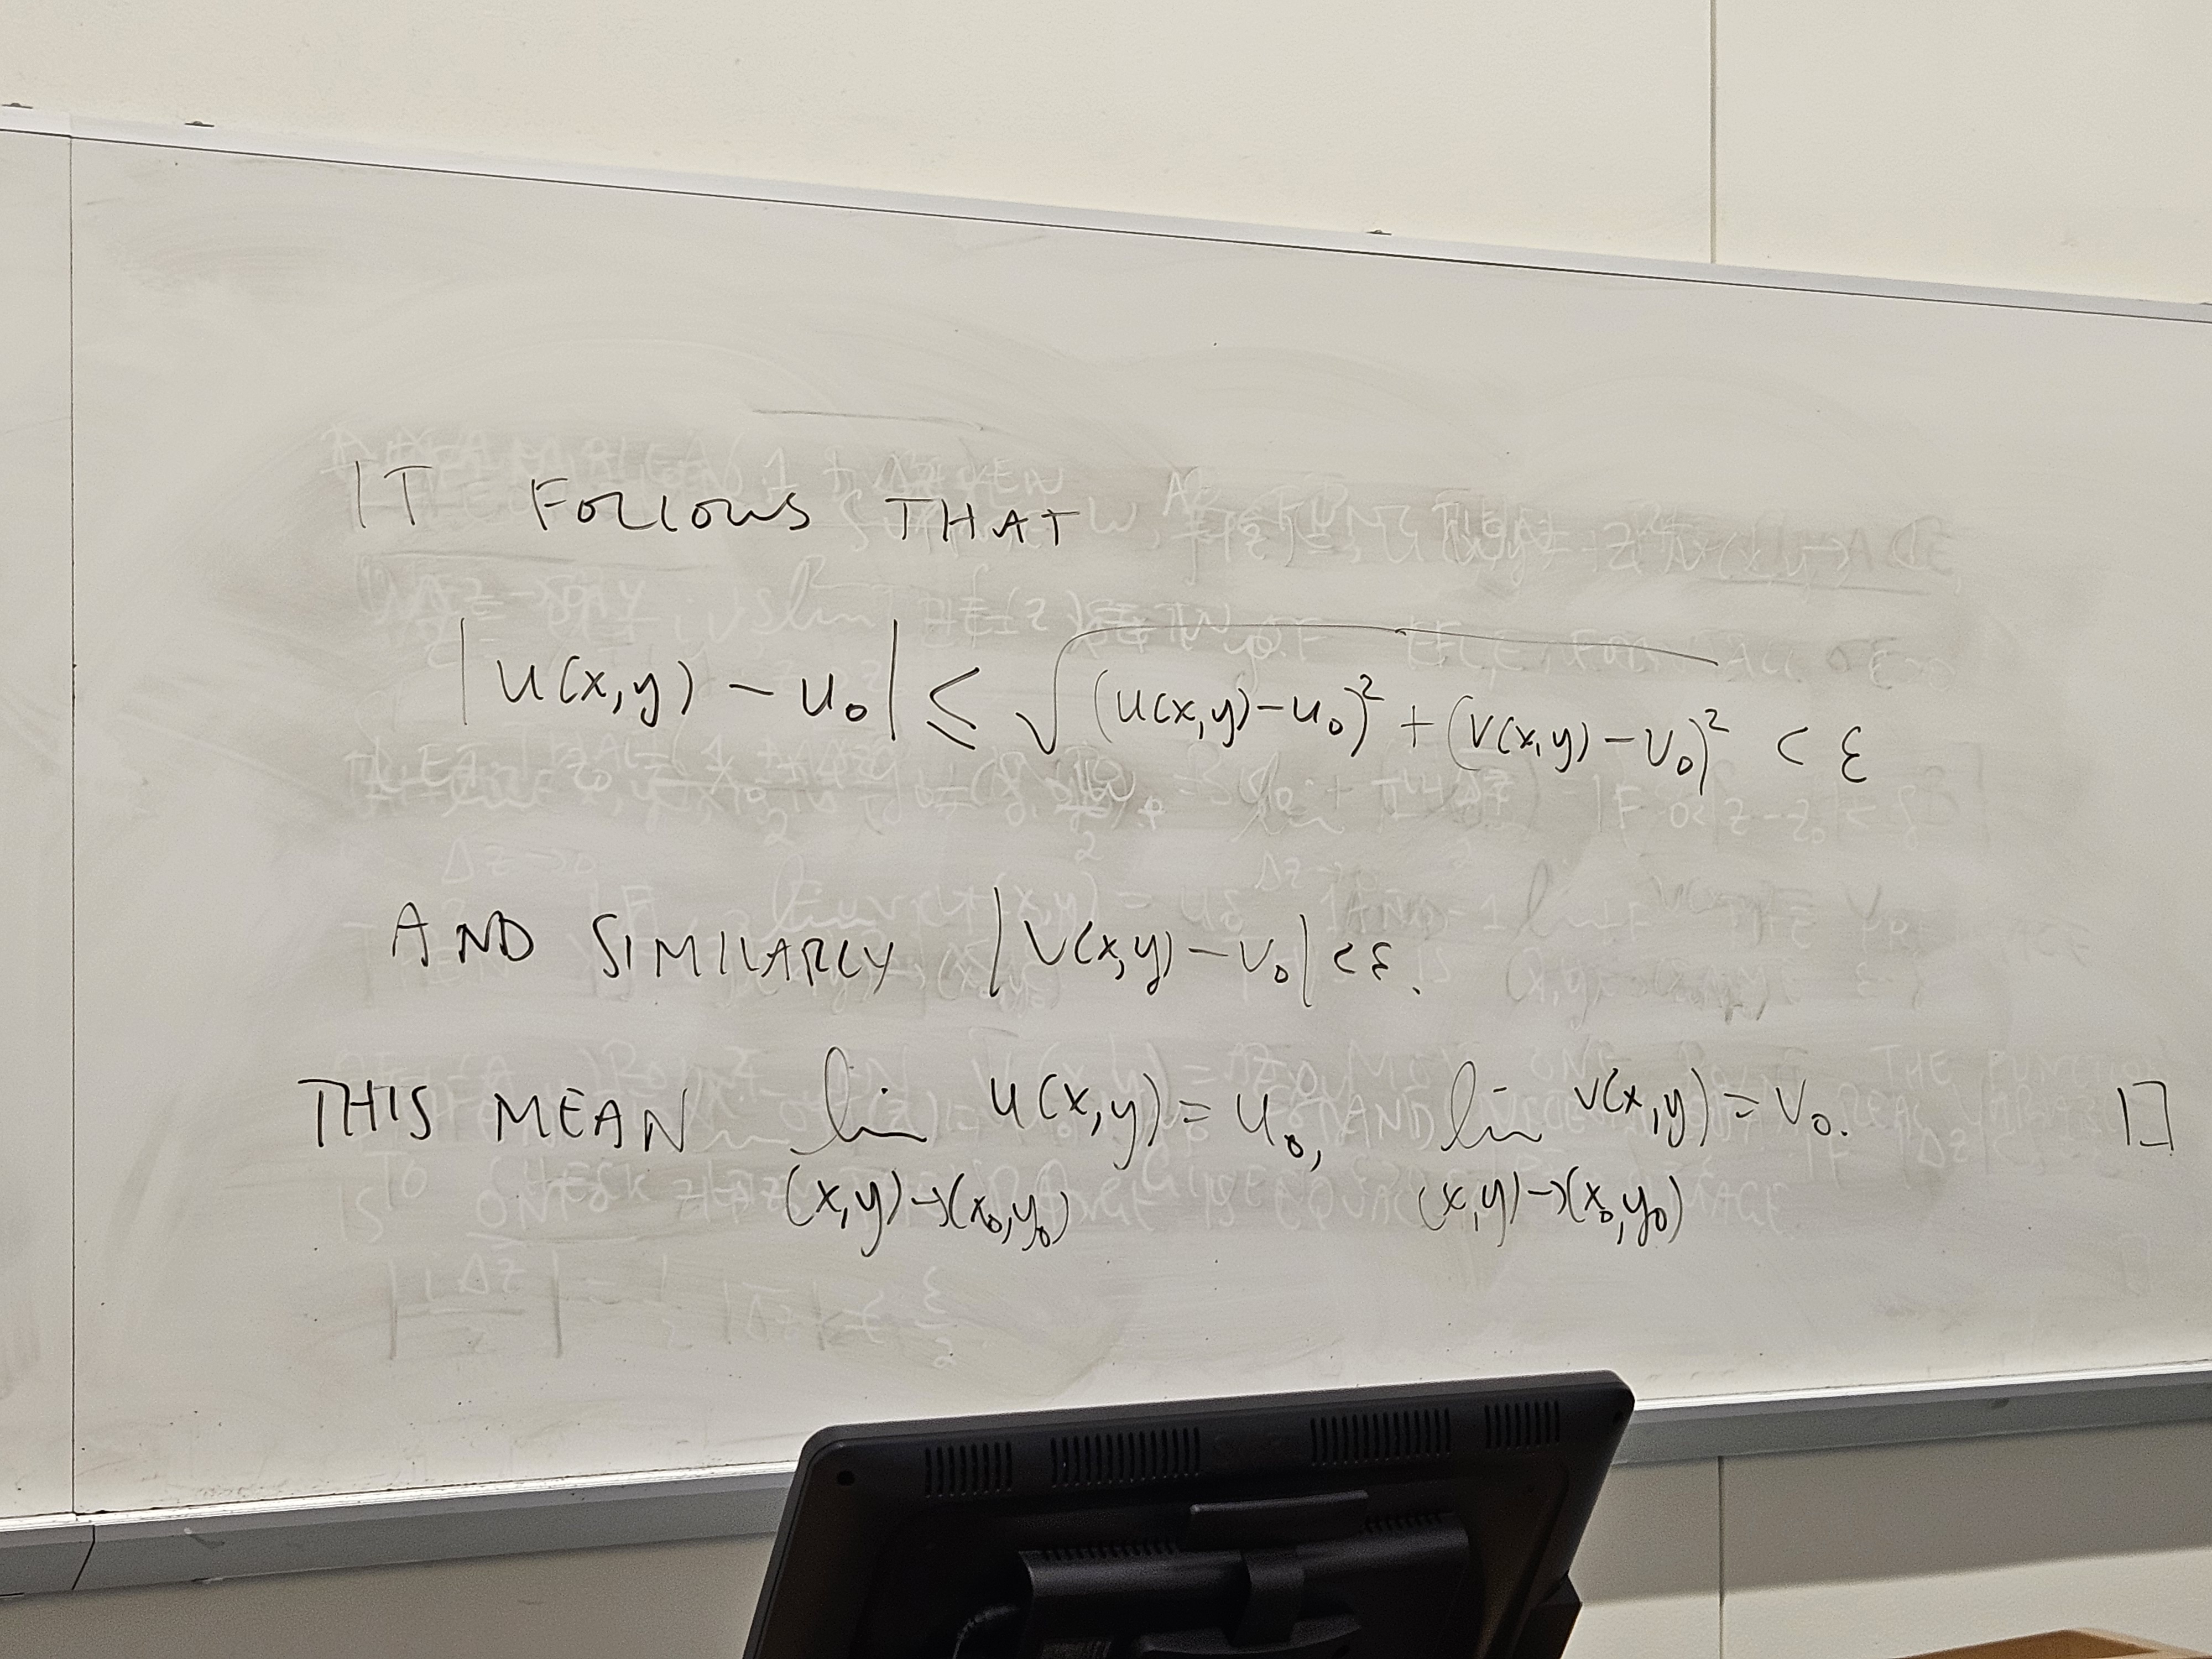 IT FOLLOWS THAT
|u(x,y) - u₀| ≤ √((u(x,y)-u₀)² + (v(x,y)-v₀)²) < ε
AND SIMILARLY |v(x,y) - v₀| < ε.
THIS MEAN lim u(x,y) = u₀, lim v(x,y) = v₀. □
(x,y)→(x₀,y₀) (x,y)→(x₀,y₀)